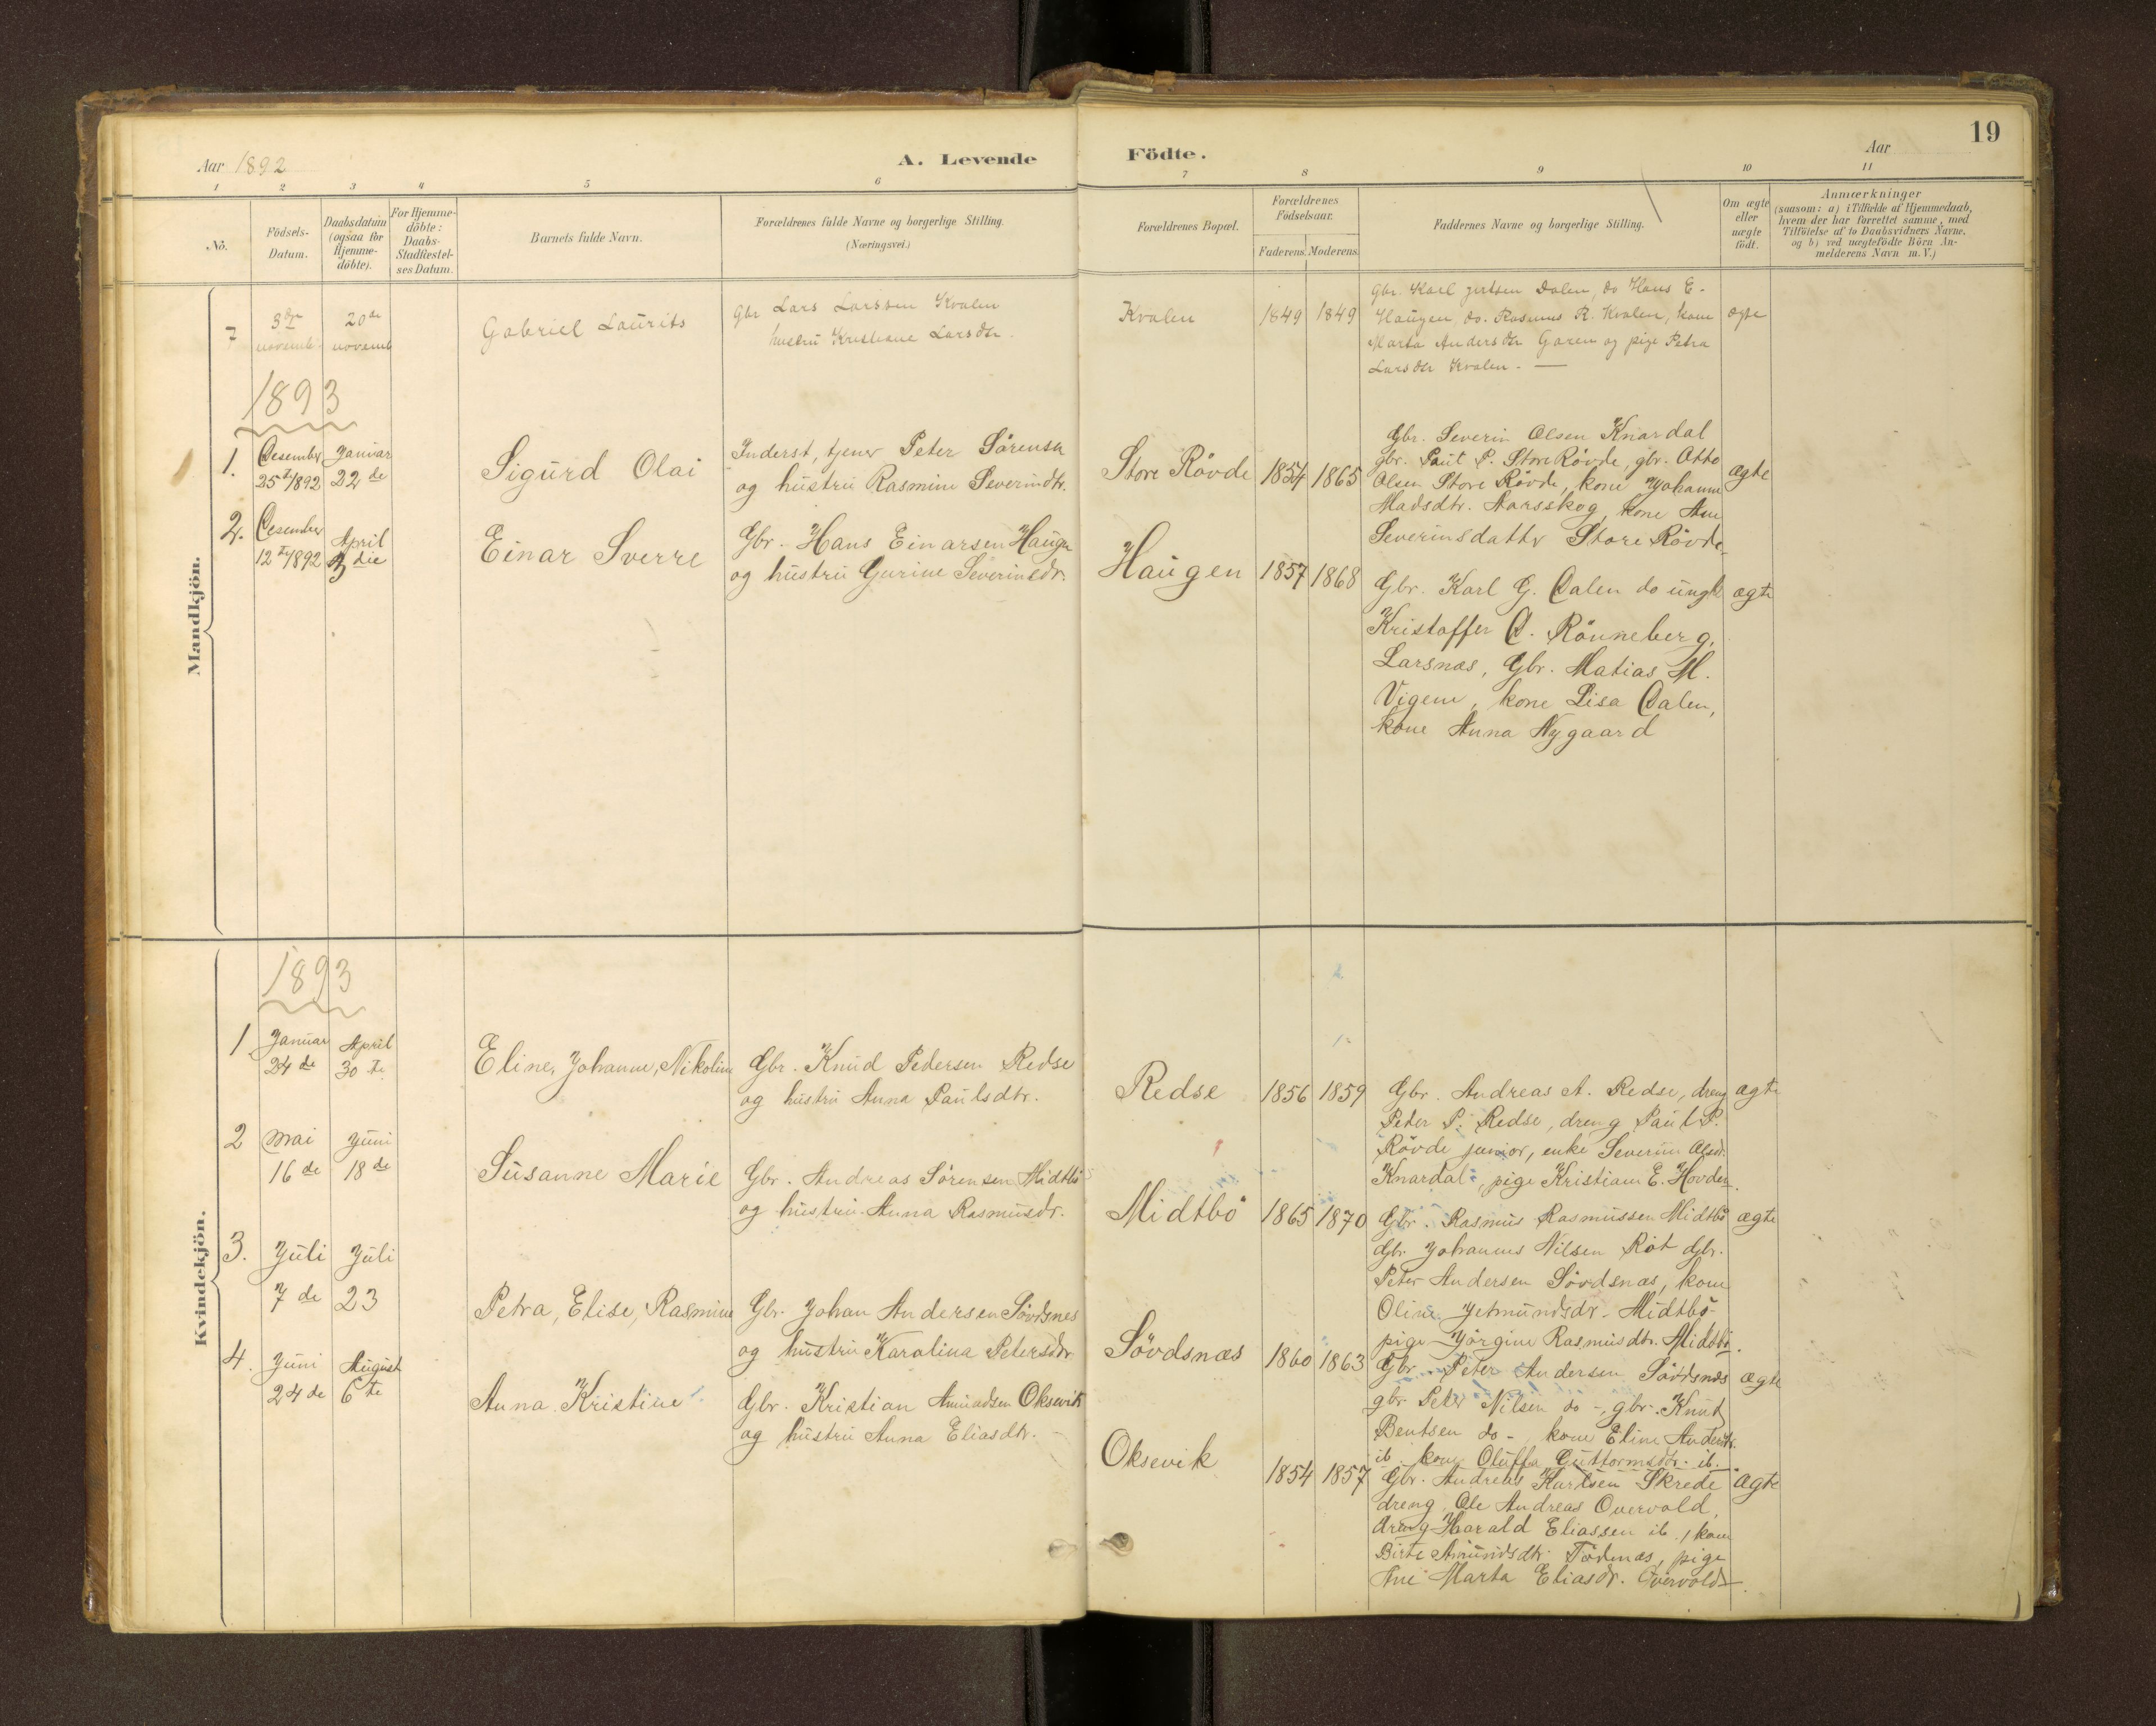 19
Aar 1892
A. Levende Födte.
Aar
1 2 3 4 5 6 7 8 9 10 11
No.
Födsels-Datum.
Daabsdatum (ogsaa for Hjemme-döbte).
For Hjemme-döbte: Daabs-Stadfæstel-ses Datum.
Barnets fulde Navn.
Forældrenes fulde Navne og borgerlige Stilling.
(Næringsvei.)
Forældrenes Bopæl.
Forældrenes Födselsaar.
Faderens. Moderens.
Faddernes Navne og borgerlige Stilling.
Om ægte eller uægte födt.
Anmærkninger
(saasom: a) i Tilfælde af Hjemmedaab,
hvem der har forrettet samme, med
Tilföielse af to Daabsvidners Navne,
og b) ved uægtefödte Börn An-
melderens Navn m. V.)
Mandkjön.
7 3die novemb. 20de novemb
Gabriel Laurits
Gbr Lars Larssen Kvalen
hustru Kristiane Larsdtr.
Kvalen 1849 1849
Gbr. Karl Dalen, do Hans E-
Haugen, do. Rasmus R. Kvalen, kone
Marta Andersdtr Garen og pige Petra
Larsdtr Kvalen. —
ægte
1893
1. Desember 25de/1892 Januar 22de
Sigurd Olai
Inderst, tjener Peter Sörensen
og hustru Rasmine Severindtr.
Store Rövde 1854 1865
Gbr. Severin Olsen Knardal
gbr. Paul P. Store Rövde, gbr. Otto
Olsen Store Rövde, kone Johanne
Madsdtr. Aarsskog, kone Ane
Severinsdatter Store Rövde.
ægte
2. Desember 12te/1892 April 3die
Einar Sverre
Gbr. Hans Einarsen Haugen
og hustru Gurine Severinsdr.
Haugen 1857 1868
Gbr. Karl G. Dalen do ungk
Kristoffer O. Rönneberg,
Larsnæs, Gbr. Matias M.
Vigene, kone Lisa Dalen,
kone Anna Nygaard
ægte
Kvindekjön.
1893
1 Januar 24de April 30te
Eline, Johanne, Nikoline
Gbr. Knud Pedersen Redse
og hustru Anna Paulsdtr.
Redse 1856 1859
Gbr. Andreas A. Redse, dreng
Peter P. Redse, dreng Paul P.
Rövde junior, enke Severine Olsdr.
Knardal, pige Kristiane E. Hovden.
ægte
2 Mai 16de Juni 18de
Susanne Marie
Gbr. Andreas Sörensen Midtbö
og hustru Anna Rasmusdr.
Midtbö 1865 1870
Gbr. Rasmus Rasmussen Midtbö
Gbr. Johannes Nilsen Röt Gbr.
Peter Andersen Sövdsnæs, kone
Oline Jetmundsdr. Midtbö
pige Jörgine Rasmusdtr. Midtbö.
ægte
3. Juli 7de Juli 23
Petra, Elise, Rasmine
Gbr. Johan Andersen Sövdsnes
og hustru Karolina Petersdtr
Sövdsnæs 1860 1863
Gbr. Peter Andersen Sövdsnæs
gbr Peter Nilsen do -, gbr. Knut
Bentsen do -, kone Eline Andersdtr.
ib. kone Oluffa Guttormsdtr. ib.
ægte
4. Juni 24de August 6te
Anna Kristine
Gbr. Kristian Amundsen Oksevik
og hustru Anna Eliasdtr.
Oksevik 1854 1857
Gbr. Andreas Karlsen Skrede
dreng Ole Andreas Overvold,
dreng Harald Eliassen ib., kone
Birte Amundsdtr. Tödenæs, pige
Ane Marta Eliasdr. Overvold.
ægte